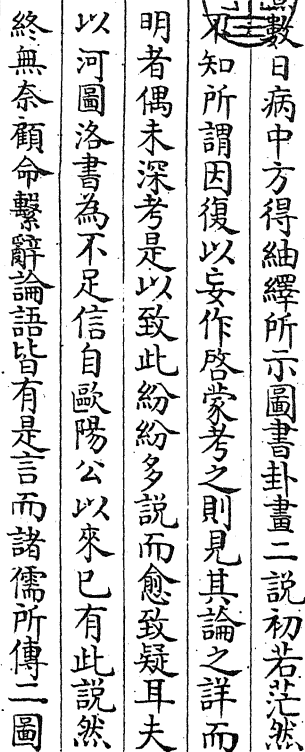 數日病中方得紬繹所示圖書卦畫二說初若茫然
不知所謂因復以妄作啓蒙考之則見其論之詳而
明者偶未深考是以致此紛紛多説而愈致疑耳夫
以河圖洛書為不足信自歐陽公以來已有此説然
終無奈顧命繫辭論語皆有是言而諸儒所傳二圖